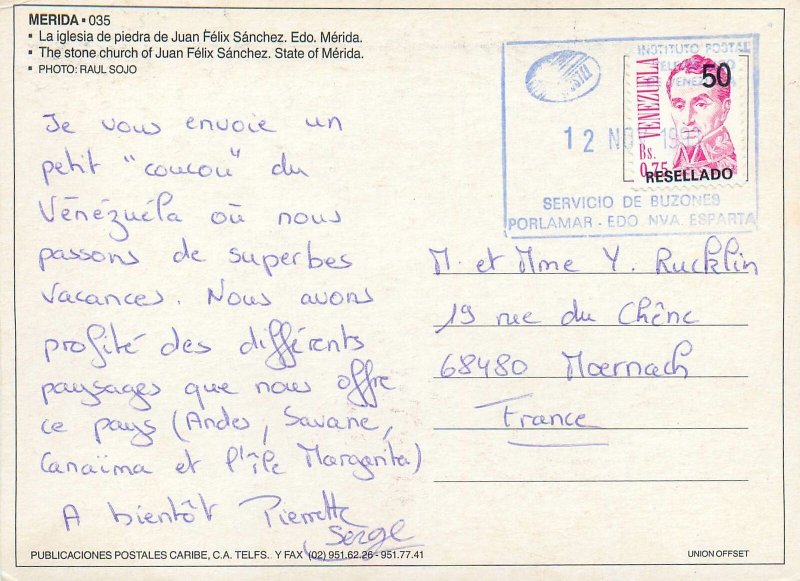 MERIDA ▪ 035
▪ La iglesia de piedra de Juan Félix Sánchez. Edo. Mérida.
▪ The stone church of Juan Félix Sánchez. State of Mérida.
▪ PHOTO: RAUL SOJO
INSTITUTO POSTAL
DE VENEZ
VENEZUELA
50
Bs.
0,75
RESELLADO
12 NO 199
SERVICIO DE BUZONES
PORLAMAR - EDO. NVA. ESPARTA
Je vous envoie un
petit "coucou" du
Vénézuéla où nous
passons de superbes
vacances. Nous avons
profité des différents
paysages que nous offre
ce pays (Andes, Savane,
Canaïma et l'île Margarita)
A bientôt Pierrette
Serge
M. et Mme Y. Rucklin
19 rue du Chêne
68480 Moernach
France
PUBLICACIONES POSTALES CARIBE, C.A. TELFS. Y FAX (02) 951.62.26 - 951.77.41
UNION OFFSET